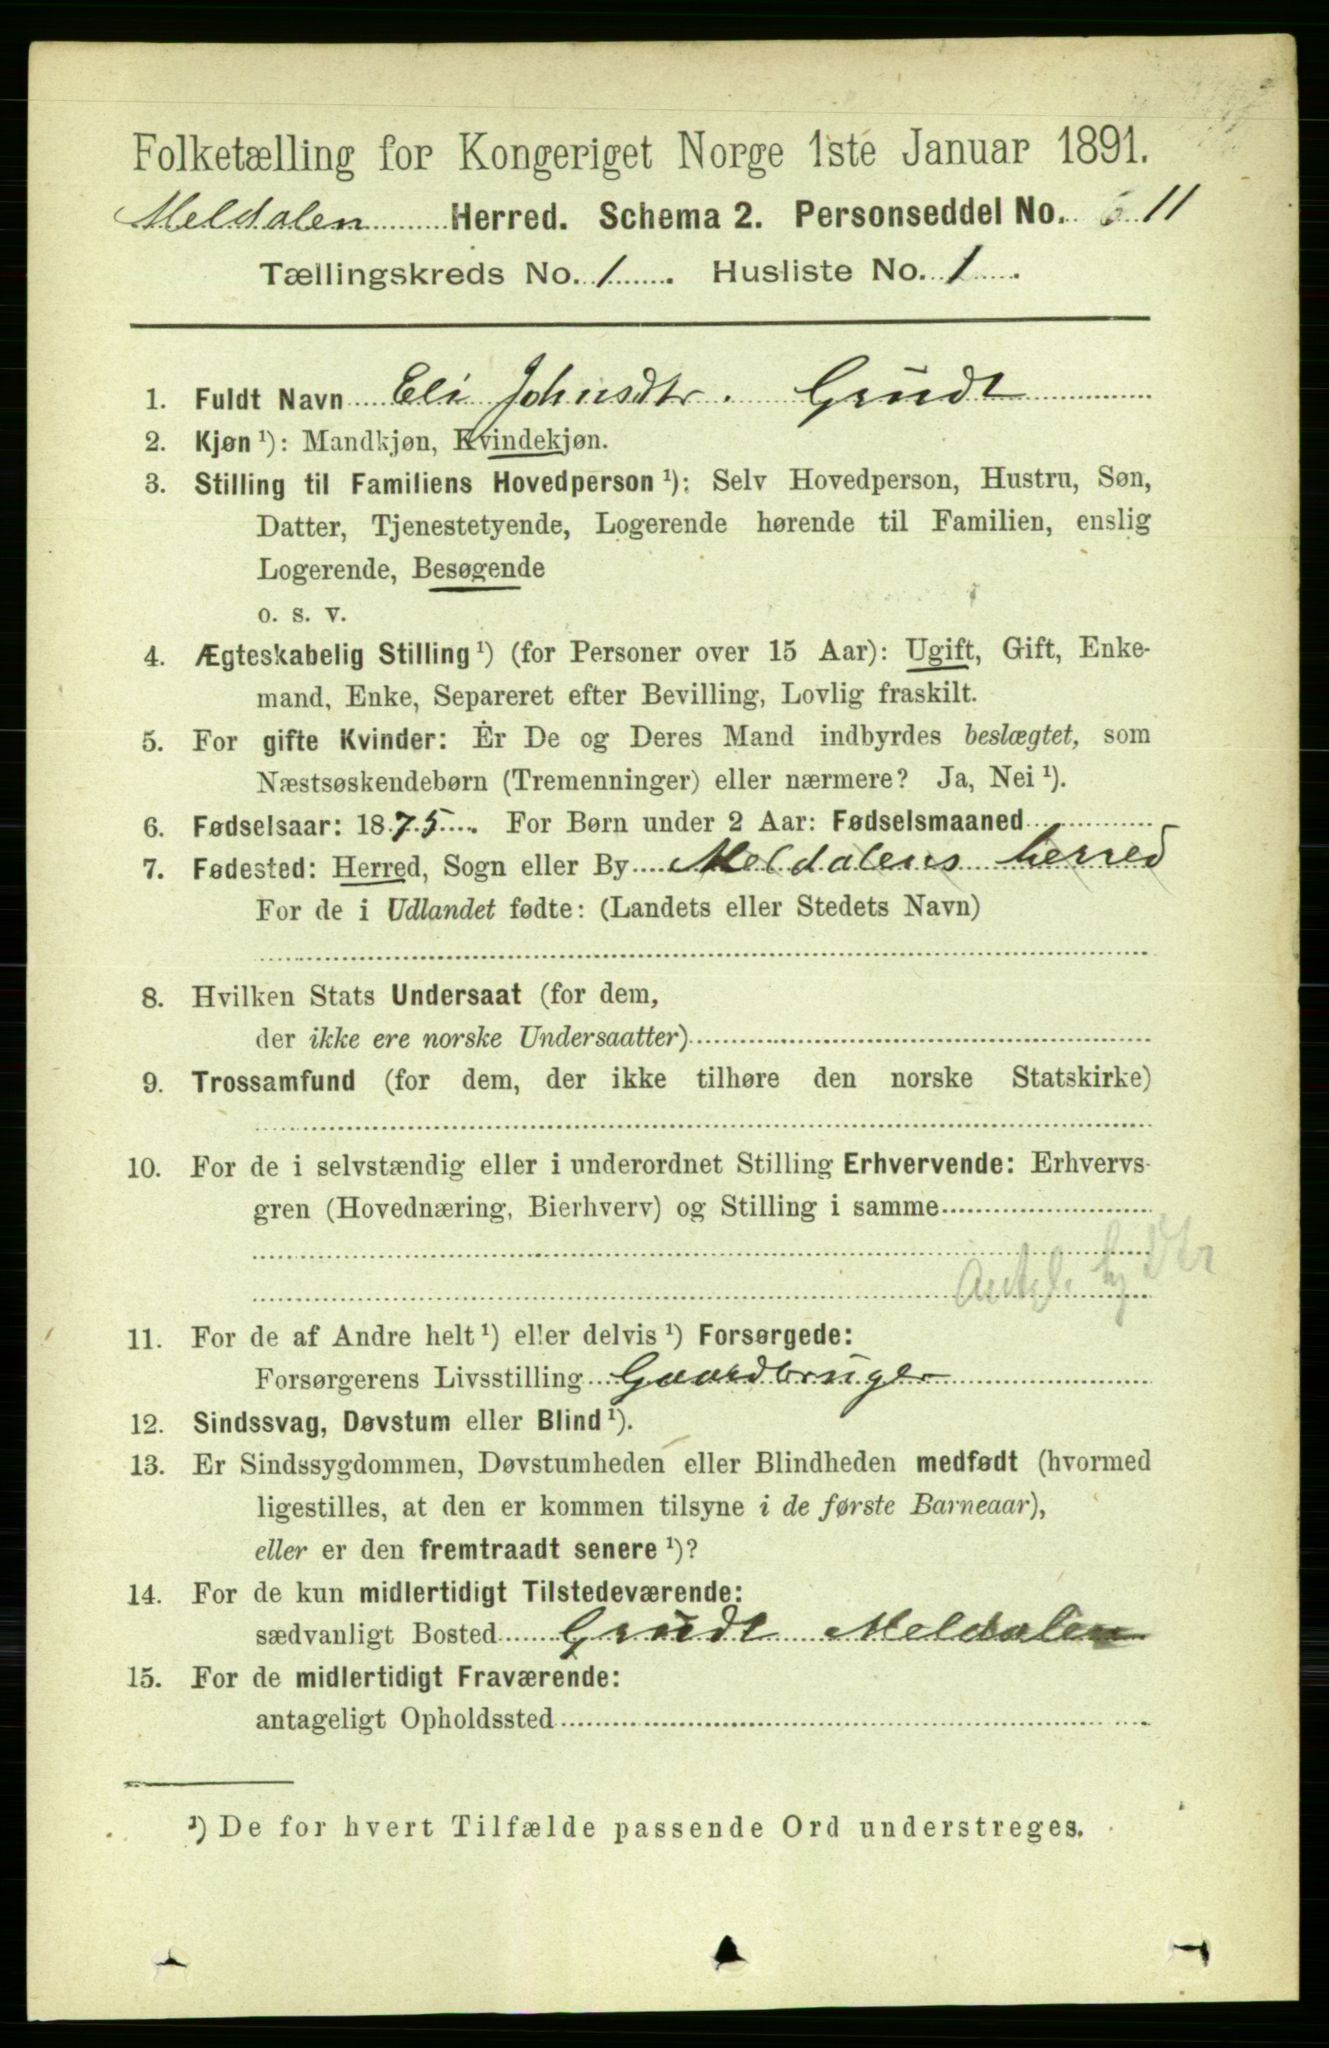 Folketælling for Kongeriget Norge 1ste Januar 1891.
Meldalen Herred. Schema 2. Personseddel No. 11
Tællingskreds No. 1. Husliste No. 1.
1. Fuldt Navn Eli Johnsdtr. Grudt
2. Kjøn ¹): Mandkjøn, Kvindekjøn.
3. Stilling til Familiens Hovedperson ¹): Selv Hovedperson, Hustru, Søn,
Datter, Tjenestetyende, Logerende hørende til Familien, enslig
Logerende, Besøgende
o. s. v.
4. Ægteskabelig Stilling ¹) (for Personer over 15 Aar): Ugift, Gift, Enke-
mand, Enke, Separeret efter Bevilling, Lovlig fraskilt.
5. For gifte Kvinder: Er De og Deres Mand indbyrdes beslægtet, som
Næstsøskendebørn (Tremenninger) eller nærmere? Ja, Nei ¹).
6. Fødselsaar: 1875. For Børn under 2 Aar: Fødselsmaaned
7. Fødested: Herred, Sogn eller By Meldalens herred
For de i Udlandet fødte: (Landets eller Stedets Navn)
8. Hvilken Stats Undersaat (for dem,
der ikke ere norske Undersaatter)
9. Trossamfund (for dem, der ikke tilhøre den norske Statskirke)
10. For de i selvstændig eller i underordnet Stilling Erhvervende: Erhvervs-
gren (Hovednæring, Bierhverv) og Stilling i samme
11. For de af Andre helt ¹) eller delvis ¹) Forsørgede:
Forsørgerens Livsstilling Gaardbruger
12. Sindssvag, Døvstum eller Blind ¹).
13. Er Sindssygdommen, Døvstumheden eller Blindheden medfødt (hvormed
ligestilles, at den er kommen tilsyne i de første Barneaar),
eller er den fremtraadt senere ¹)?
14. For de kun midlertidigt Tilstedeværende:
sædvanligt Bosted Grudt Meldalen
15. For de midlertidigt Fraværende:
antageligt Opholdssted
¹) De for hvert Tilfælde passende Ord understreges.